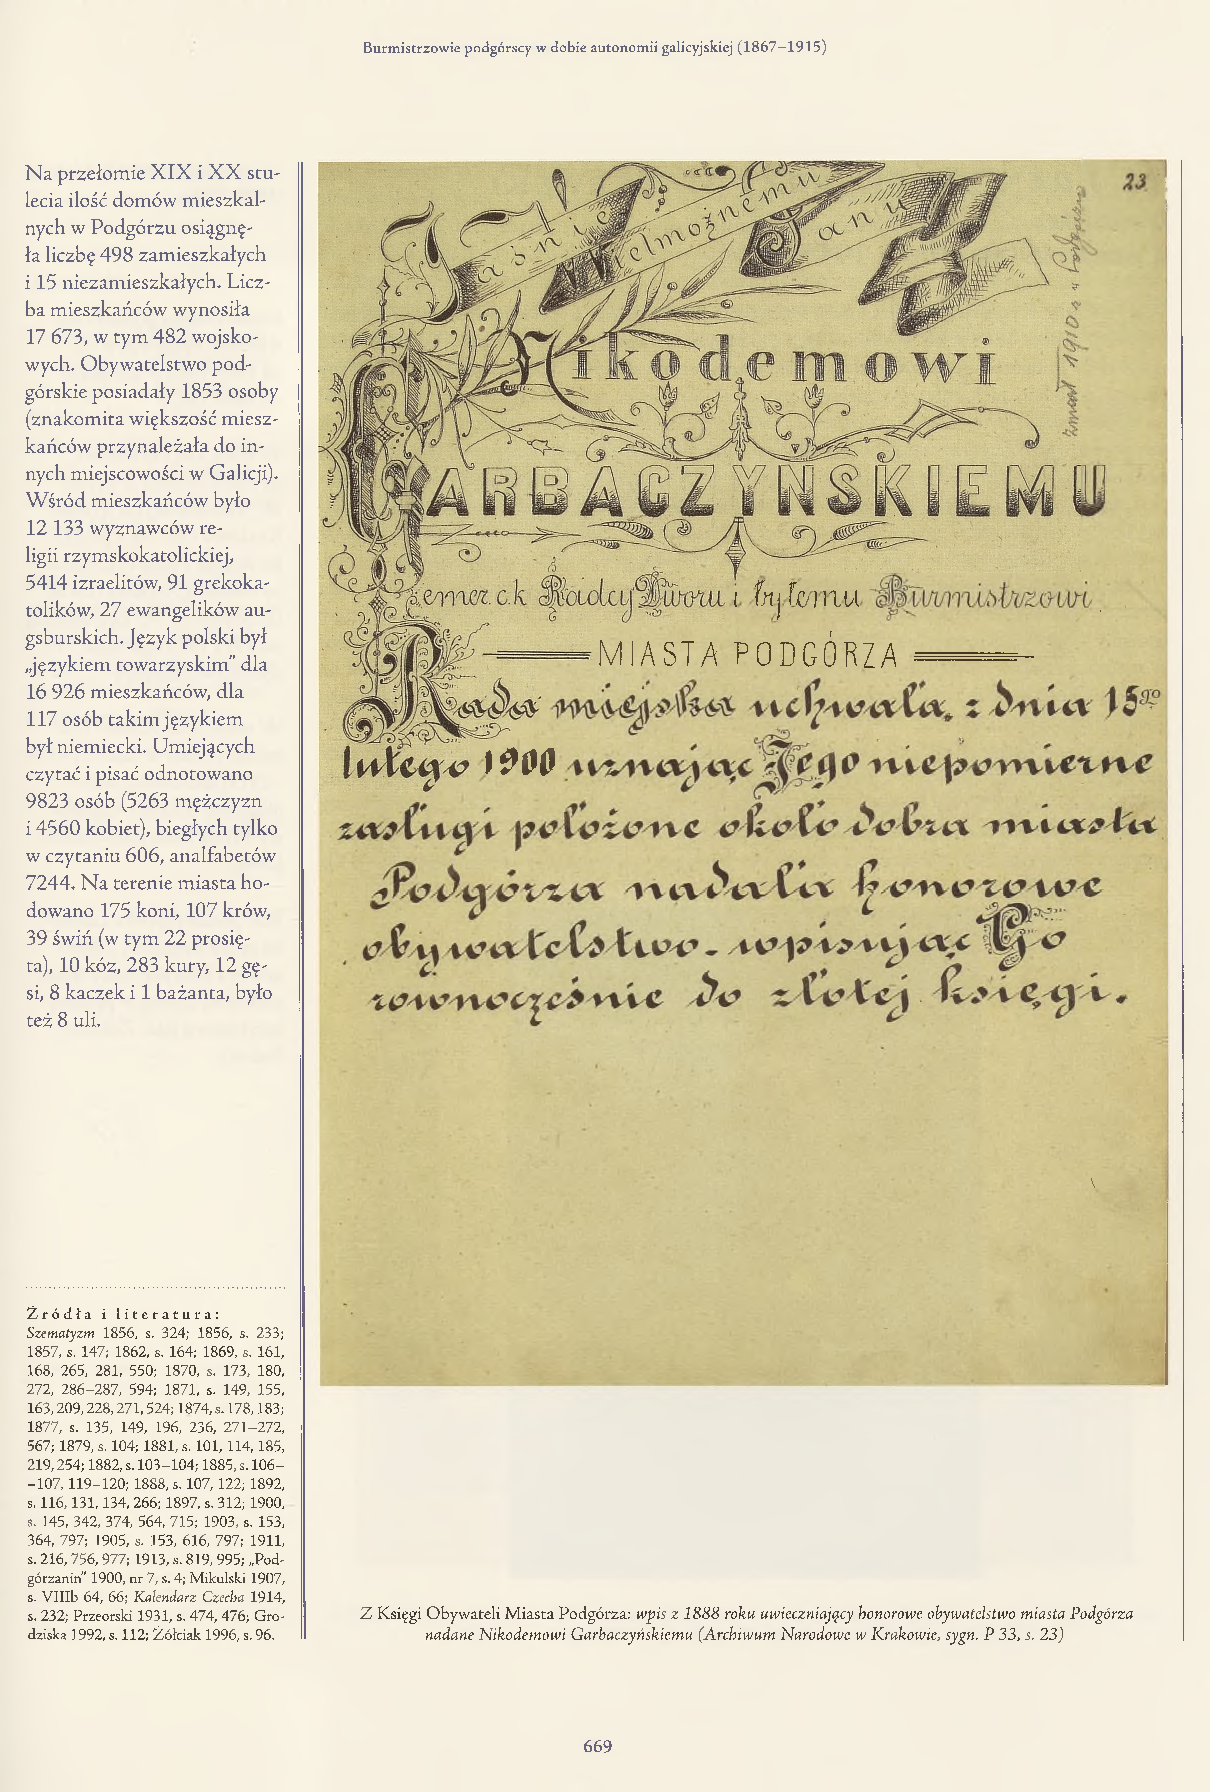 Burmistrzowie podgórscy w dobie autonomii galicyjskiej (1867–1915)
Na przełomie XIX i XX stu-
lecia ilość domów mieszkal-
nych w Podgórzu osiągnę-
ła liczbę 498 zamieszkałych
i 15 niezamieszkałych. Licz-
ba mieszkańców wynosiła
17 673, w tym 482 wojsko-
wych. Obywatelstwo pod-
górskie posiadały 1853 osoby
(znakomita większość miesz-
kańców przynależała do in-
nych miejscowości w Galicji).
Wśród mieszkańców było
12 133 wyznawców re-
ligii rzymskokatolickiej,
5414 izraelitów, 91 grekoka-
tolików, 27 ewangelików au-
gsburskich. Język polski był
„językiem towarzyskim" dla
16 926 mieszkańców, dla
117 osób takim językiem
był niemiecki. Umiejących
czytać i pisać odnotowano
9823 osób (5263 mężczyzn
i 4560 kobiet), biegłych tylko
w czytaniu 606, analfabetów
7244. Na terenie miasta ho-
dowano 175 koni, 107 krów,
39 świń (w tym 22 prosię-
ta), 10 kóz, 283 kury, 12 gę-
si, 8 kaczek i 1 bażanta, było
też 8 uli.
Źródła i literatura:
Szematyzm 1856, s. 324; 1856, s. 233;
1857, s. 147; 1862, s. 164; 1869, s. 161,
168, 265, 281, 550; 1870, s. 173, 180,
272, 286–287, 594; 1871, s. 149, 155,
163, 209, 228, 271, 524; 1874, s. 178, 183;
1877, s. 135, 149, 196, 236, 271–272,
567; 1879, s. 104; 1881, s. 101, 114, 185,
219, 254; 1882, s. 103–104; 1885, s. 106–
–107, 119–120; 1888, s. 107, 122; 1892,
s. 116, 131, 134, 266; 1897, s. 312; 1900,
s. 145, 342, 374, 564, 715; 1903, s. 153,
364, 797; 1905, s. 153, 616, 797; 1911,
s. 216, 756, 977; 1913, s. 819, 995; „Pod-
górzanin" 1900, nr 7, s. 4; Mikulski 1907,
s. VIIIb 64, 66; Kalendarz Czecha 1914,
s. 232; Przeorski 1931, s. 474, 476; Gro-
dziska 1992, s. 112; Żółciak 1996, s. 96.
23.
zmarł 1910 r. w Podgórzu
Jaśnie Wielmożnemu Panu
Nikodemowi
GARBACZYŃSKIEMU
emer. c.k. Radcy Dworu i byłemu Burmistrzowi
MIASTA PODGÓRZA
Rada miejska uchwałą z dnia 15go
lutego 1900 uznając Jego niepomierne
zasługi położone około dobra miasta
Podgórza nadała honorowe
obywatelstwo, wpisując Go
równocześnie do złotej księgi.
Z Księgi Obywateli Miasta Podgórza: wpis z 1888 roku uwieczniający honorowe obywatelstwo miasta Podgórza
nadane Nikodemowi Garbaczyńskiemu (Archiwum Narodowe w Krakowie, sygn. P 33, s. 23)
669